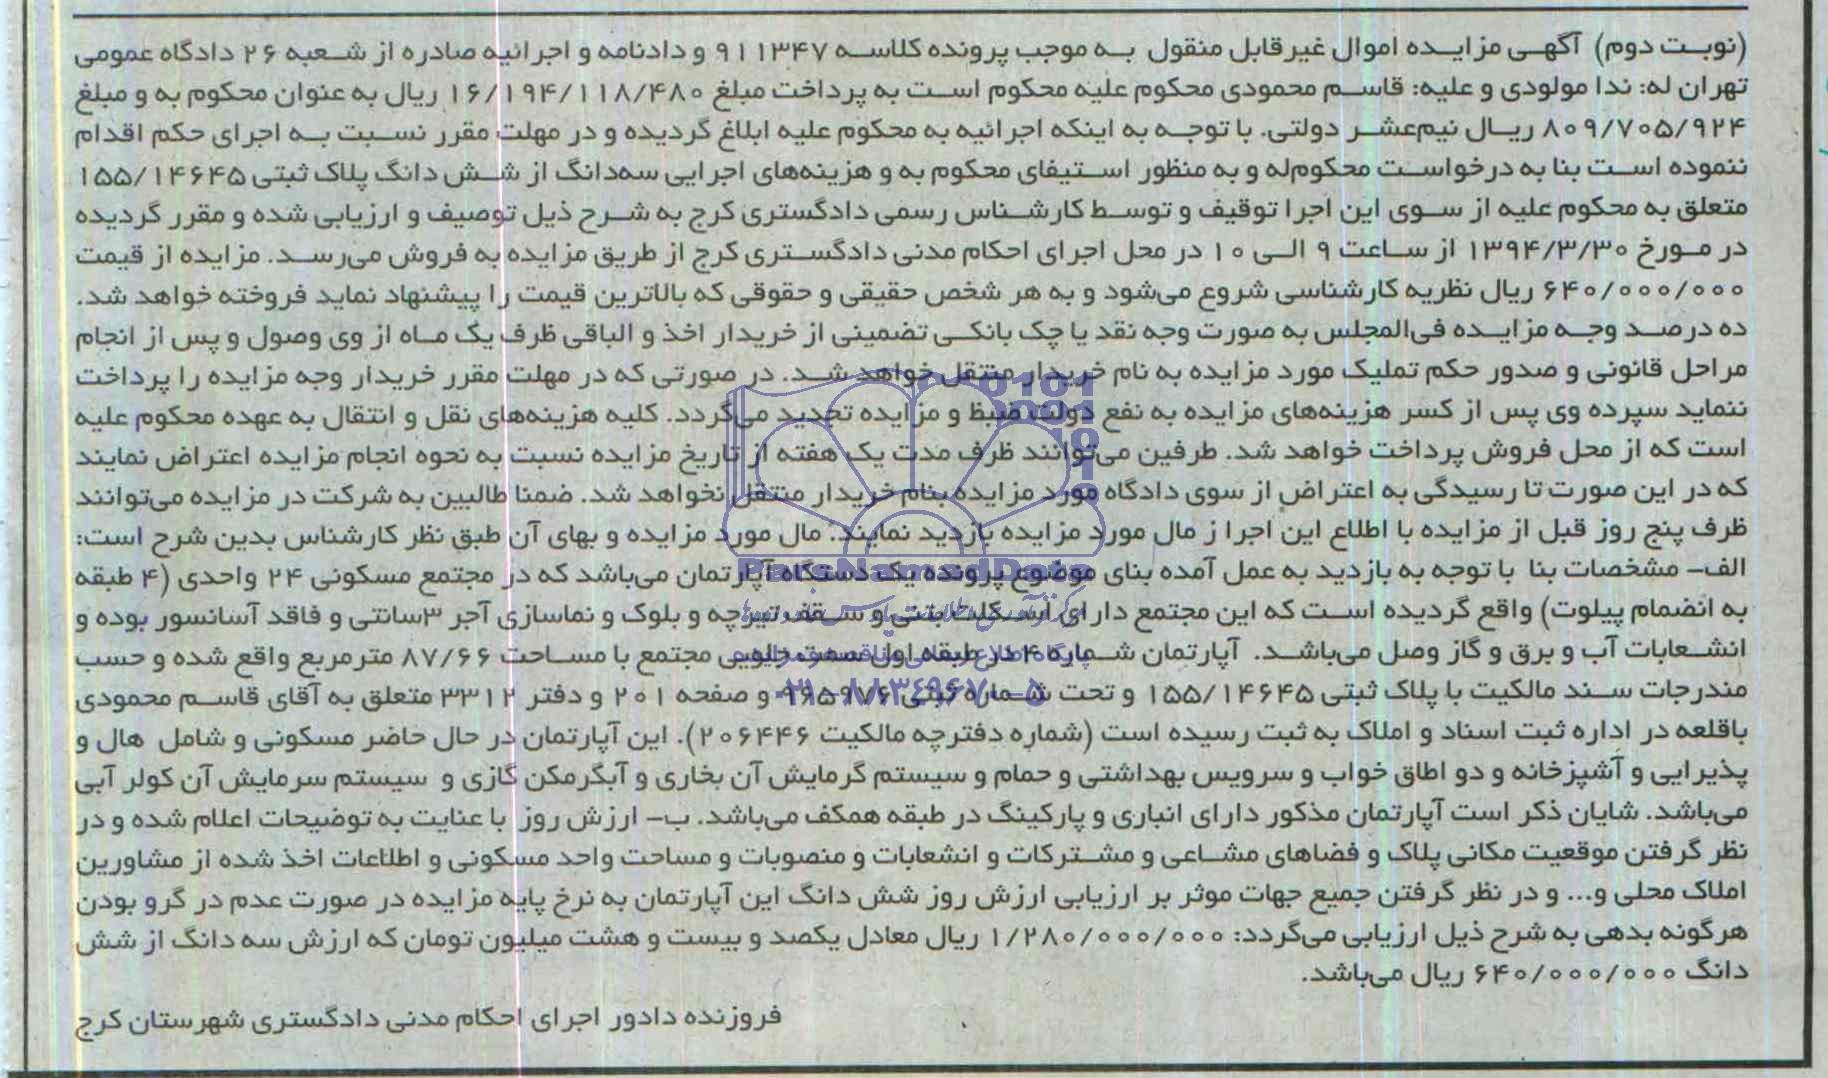 (نوبت دوم) آگهی مزایده اموال غیرقابل منقول به موجب پرونده کلاسه ۹۱۱۳۴۷ و دادنامه و اجرائیه صادره از شعبه ۲۶ دادگاه عمومی
تهران له: ندا مولودی و علیه: قاسم محمودی محکوم علیه محکوم است به پرداخت مبلغ ۱۶/۱۹۴/۱۱۸/۴۸۰ ریال به عنوان محکوم به و مبلغ
۸۰۹/۷۰۵/۹۲۴ ریال نیم‌عشر دولتی. با توجه به اینکه اجرائیه به محکوم علیه ابلاغ گردیده و در مهلت مقرر نسبت به اجرای حکم اقدام
ننموده است بنا به درخواست محکوم‌له و به منظور استیفای محکوم به و هزینه‌های اجرایی سه‌دانگ از شش دانگ پلاک ثبتی ۱۵۵/۱۴۶۴۵
متعلق به محکوم علیه از سوی این اجرا توقیف و توسط کارشناس رسمی دادگستری کرج به شرح ذیل توصیف و ارزیابی شده و مقرر گردیده
در مورخ ۱۳۹۴/۳/۳۰ از ساعت ۹ الی ۱۰ در محل اجرای احکام مدنی دادگستری کرج از طریق مزایده به فروش می‌رسد. مزایده از قیمت
۶۴۰/۰۰۰/۰۰۰ ریال نظریه کارشناسی شروع می‌شود و به هر شخص حقیقی و حقوقی که بالاترین قیمت را پیشنهاد نماید فروخته خواهد شد.
ده درصد وجه مزایده فی‌المجلس به صورت وجه نقد یا چک بانکی تضمینی از خریدار اخذ و الباقی ظرف یک ماه از وی وصول و پس از انجام
مراحل قانونی و صدور حکم تملیک مورد مزایده به نام خریدار منتقل خواهد شد. در صورتی که در مهلت مقرر خریدار وجه مزایده را پرداخت
ننماید سپرده وی پس از کسر هزینه‌های مزایده به نفع دولت ضبط و مزایده تجدید می‌گردد. کلیه هزینه‌های نقل و انتقال به عهده محکوم علیه
است که از محل فروش پرداخت خواهد شد. طرفین می‌توانند ظرف مدت یک هفته از تاریخ مزایده نسبت به نحوه انجام مزایده اعتراض نمایند
که در این صورت تا رسیدگی به اعتراض از سوی دادگاه مورد مزایده بنام خریدار منتقل نخواهد شد. ضمنا طالبین به شرکت در مزایده می‌توانند
ظرف پنج روز قبل از مزایده با اطلاع این اجرا ز مال مورد مزایده بازدید نمایند. مال مورد مزایده و بهای آن طبق نظر کارشناس بدین شرح است:
الف- مشخصات بنا با توجه به بازدید به عمل آمده بنای موضوع پرونده یک دستگاه آپارتمان می‌باشد که در مجتمع مسکونی ۲۴ واحدی (۴ طبقه
به انضمام پیلوت) واقع گردیده است که این مجتمع دارای اسکلت بتنی و سقف تیرچه و بلوک و نماسازی آجر ۳سانتی و فاقد آسانسور بوده و
انشعابات آب و برق و گاز وصل می‌باشد. آپارتمان شماره ۴ در طبقه اول سمت جنوبی مجتمع با مساحت ۸۷/۶۶ مترمربع واقع شده و حسب
مندرجات سند مالکیت با پلاک ثبتی ۱۵۵/۱۴۶۴۵ و تحت شماره ثبتی ۹۶۵۹۷۶ و صفحه ۲۰۱ و دفتر ۳۳۱۲ متعلق به آقای قاسم محمودی
باقلعه در اداره ثبت اسناد و املاک به ثبت رسیده است (شماره دفترچه مالکیت ۲۰۶۴۴۶). این آپارتمان در حال حاضر مسکونی و شامل هال و
پذیرایی و آشپزخانه و دو اطاق خواب و سرویس بهداشتی و حمام و سیستم گرمایش آن بخاری و آبگرمکن گازی و سیستم سرمایش آن کولر آبی
می‌باشد. شایان ذکر است آپارتمان مذکور دارای انباری و پارکینگ در طبقه همکف می‌باشد. ب- ارزش روز با عنایت به توضیحات اعلام شده و در
نظر گرفتن موقعیت مکانی پلاک و فضاهای مشاعی و مشترکات و انشعابات و منصوبات و مساحت واحد مسکونی و اطلاعات اخذ شده از مشاورین
املاک محلی و... و در نظر گرفتن جمیع جهات موثر بر ارزیابی ارزش روز شش دانگ این آپارتمان به نرخ پایه مزایده در صورت عدم در گرو بودن
هرگونه بدهی به شرح ذیل ارزیابی می‌گردد: ۱/۲۸۰/۰۰۰/۰۰۰ ریال معادل یکصد و بیست و هشت میلیون تومان که ارزش سه دانگ از شش
دانگ ۶۴۰/۰۰۰/۰۰۰ ریال می‌باشد.
فروزنده دادور اجرای احکام مدنی دادگستری شهرستان کرج
ParsNamadData
۰۲۱-۸۸۳۴۹۶۷۰-۵